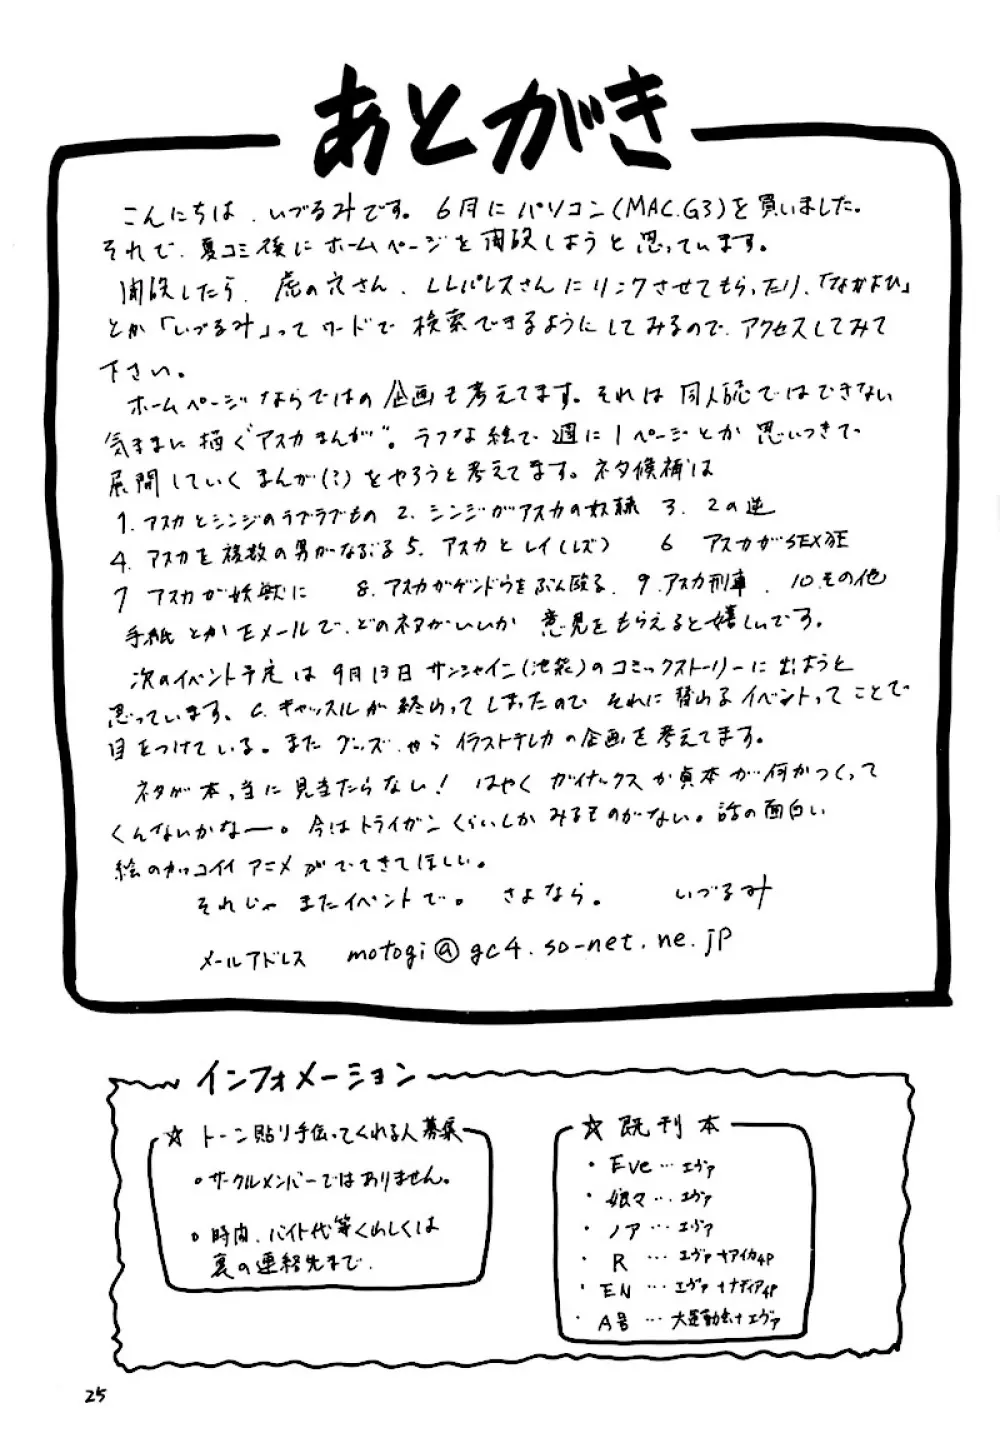 あとがき
こんにちは、いづるみです。6月にパソコン(MAC.G3)を買いました。
それで、夏コミ後にホームページを開設しようと思っています。
開設したら、虎の穴さん、LLパレスさんにリンクさせてもらったり、「なかよひ」
とか「いづるみ」ってワードで検索できるようにしてみるので、アクセスしてみて
下さい。
ホームページならではの企画も考えてます。それは同人誌ではできない
気ままに描く"アスカまんが"。ラフな絵で週に1ページとか思いつきで
展開していくまんが(?)をやろうと考えてます。ネタ候補は
1. アスカとシンジのラブラブもの 2. シンジがアスカの奴隷 3. 2の逆
4. アスカを複数の男がなぶる 5. アスカとレイ(レズ) 6 アスカがSEX狂
7 アスカが妖獣に 8. アスカがゲンドウをぶん殴る. 9. アスカ刑事. 10. その他
手紙とかEメールで、どのネタがいいか意見をもらえると嬉しいです。
次のイベント予定は9月13日サンシャイン(池袋)のコミックストーリーに出ようと
思っています。C.キャッスルが終わってしまったので、それに替わるイベントってことで
目をつけている。またグッズやらイラストテレカの企画を考えてます。
ネタが本当に見当たらない! はやくガイナックスか貞本が何かつくって
くんないかなー。今はトライガンくらいしかみるものがない。話の面白い
絵のカッコイイアニメがでてきてほしい。
それじゃまたイベントで。さよなら。 いづるみ
メールアドレス motogi@gc4.so-net.ne.jp
インフォメーション
☆ トーン貼り手伝ってくれる人募集
・サークルメンバーではありません。
・時間、バイト代等くわしくは
裏の連絡先まで.
☆ 既刊本
・Eve…エヴァ
・娘々…エヴァ
・ノア…エヴァ
・R…エヴァ+アイカ4P
・EN…エヴァ+ナディア4P
・A号…大運動会+エヴァ
25